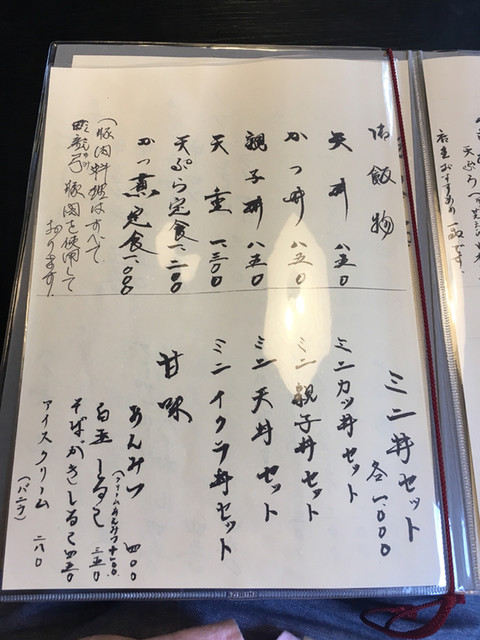 御飯物
天丼 八五〇
かつ丼 八五〇
親子丼 八五〇
天重 一三〇〇
天ぷら定食 一、二〇〇
かつ煮定食 一、〇〇〇
(豚肉料理はすべて
豚肉を使用して
おります。)
ミニ丼セット
各一、〇〇〇
ミニカツ丼セット
ミニ親子丼セット
ミニ天丼セット
ミニイクラ丼セット
甘味
あんみつ 四〇〇
(クリームあんみつ+一〇〇)
白玉しるこ 三五〇
そばがきしるこ 四五〇
アイスクリーム 二八〇
(バニラ)
店主おすすめの一品です。